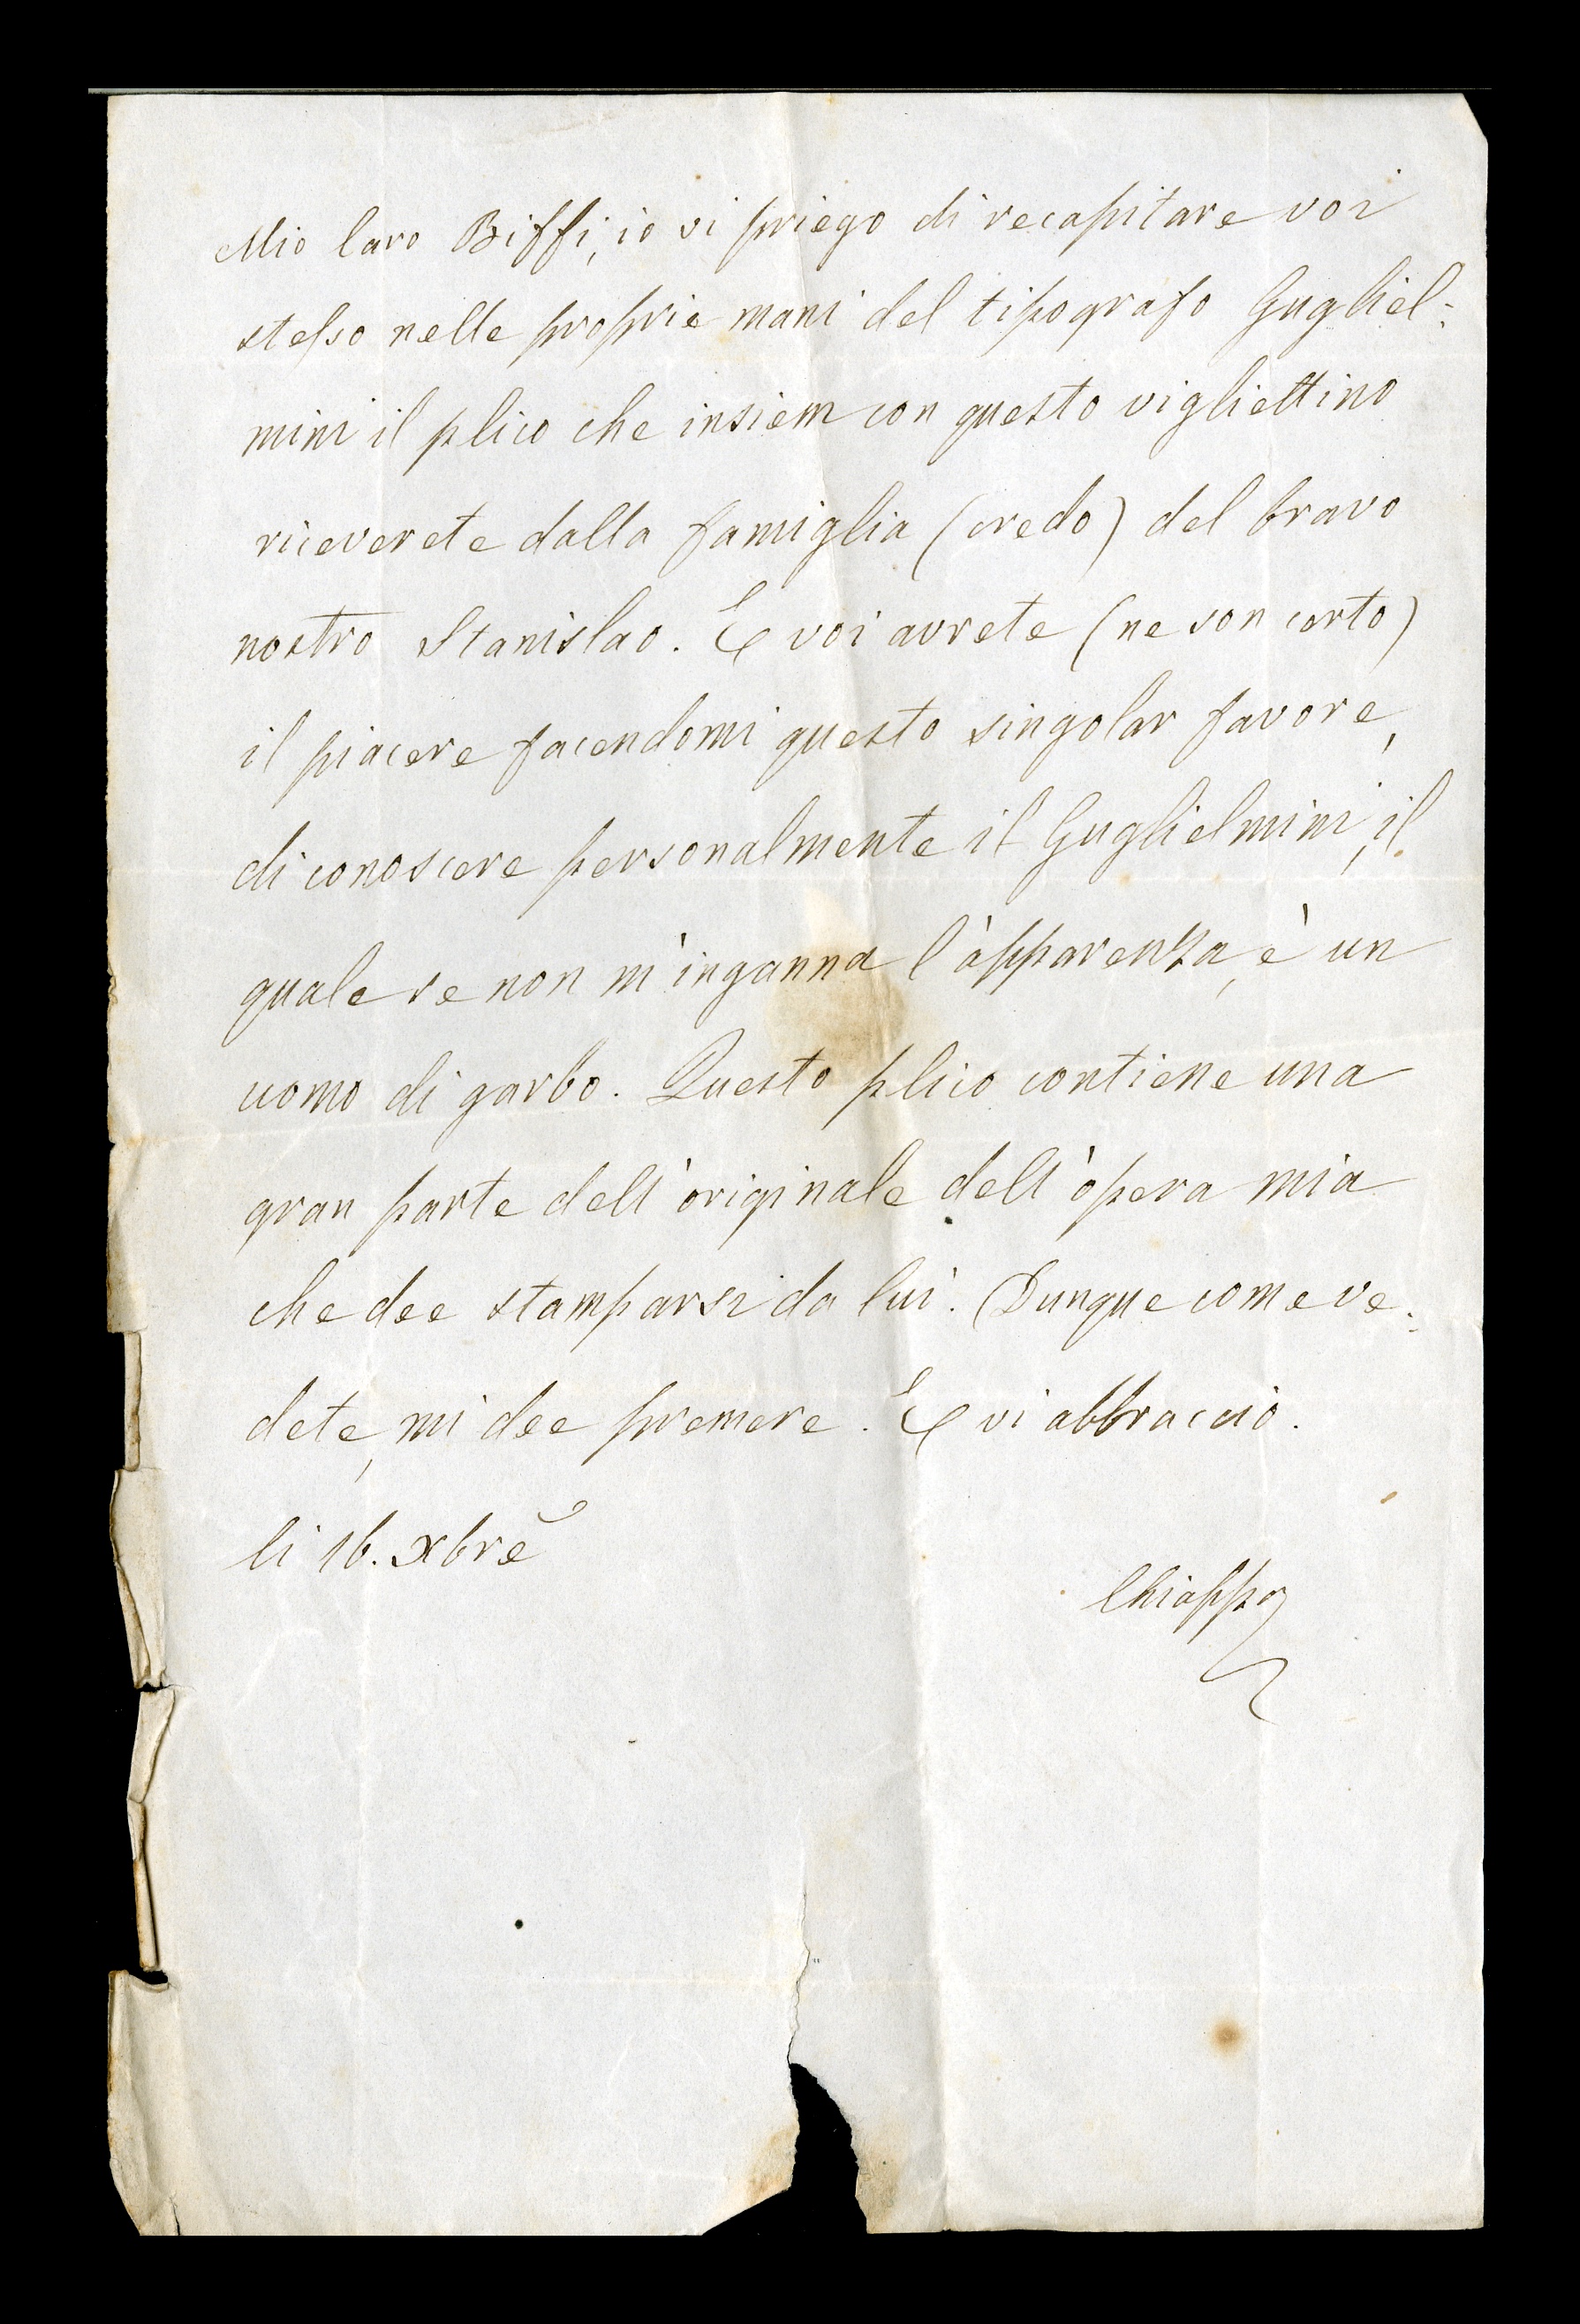 Mio Caro Biffi, io vi priego di recapitare voi
stesso nelle proprie mani del tipografo Gugliel=
mini il plico che insiem con questo vigliettino
riceverete dalla famiglia (credo) del bravo
nostro Stanislao. E voi avrete (ne son certo)
il piacere facendomi questo singolar favore,
di conoscere personalmente il Guglielmini, il
quale se non m'inganna l'apparenza, è un
uomo di garbo. Questo plico contiene una
gran parte dell'originale dell'opera mia
che dee stamparsi da lui. Dunque come ve=
dete, mi dee premere. E vi abbraccio.
li 16. xbre
Chiappa